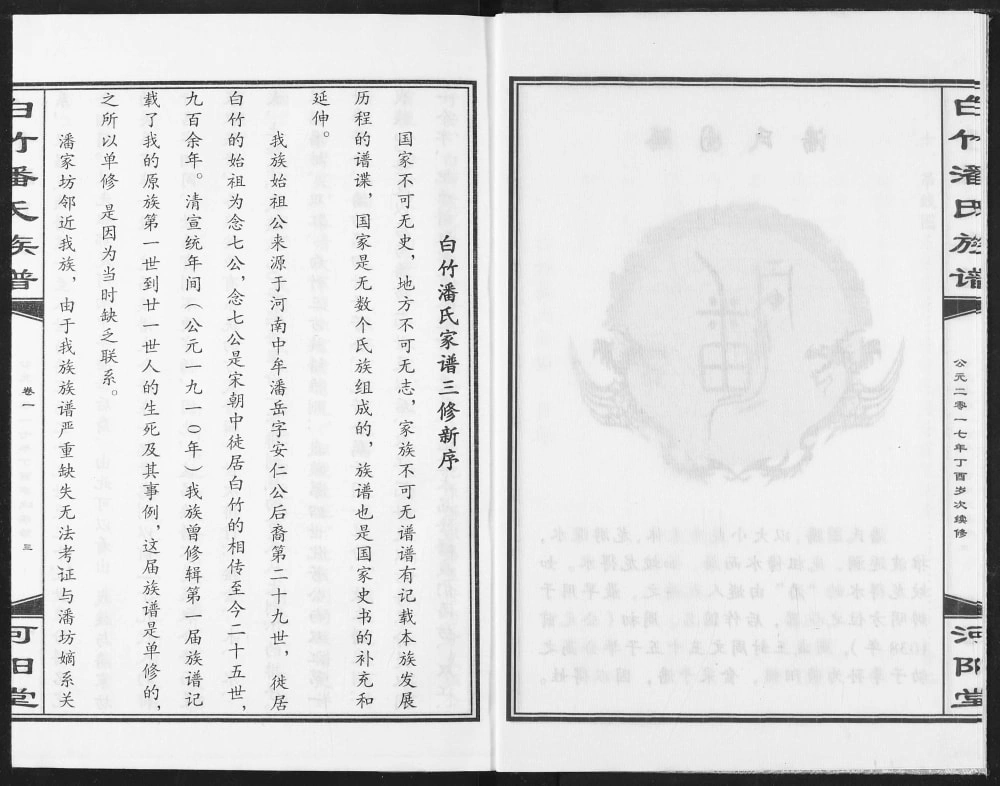 白竹潘氏族谱
公元二零一七年丁酉岁次续修
河阳堂
白竹潘氏家谱三修新序
国家不可无史，地方不可无志，家族不可无谱谱有记载本族发展
历程的谱谍，国家是无数个氏族组成的，族谱也是国家史书的补充和
延伸。
我族始祖公来源于河南中牟潘岳字安仁公后裔第二十九世，徙居
白竹的始祖为念七公，念七公是宋朝中徒居白竹的相传至今二十五世，
九百余年。清宣统年间（公元一九一〇年）我族曾修辑第一届族谱记
载了我的原族第一世到廿一世人的生死及其事例，这届族谱是单修的，
之所以单修 是因为当时缺乏联系。
潘家坊邻近我族，由于我族族谱严重缺失无法考证与潘坊嫡系关
白竹潘氏族谱
卷一
三
河阳堂